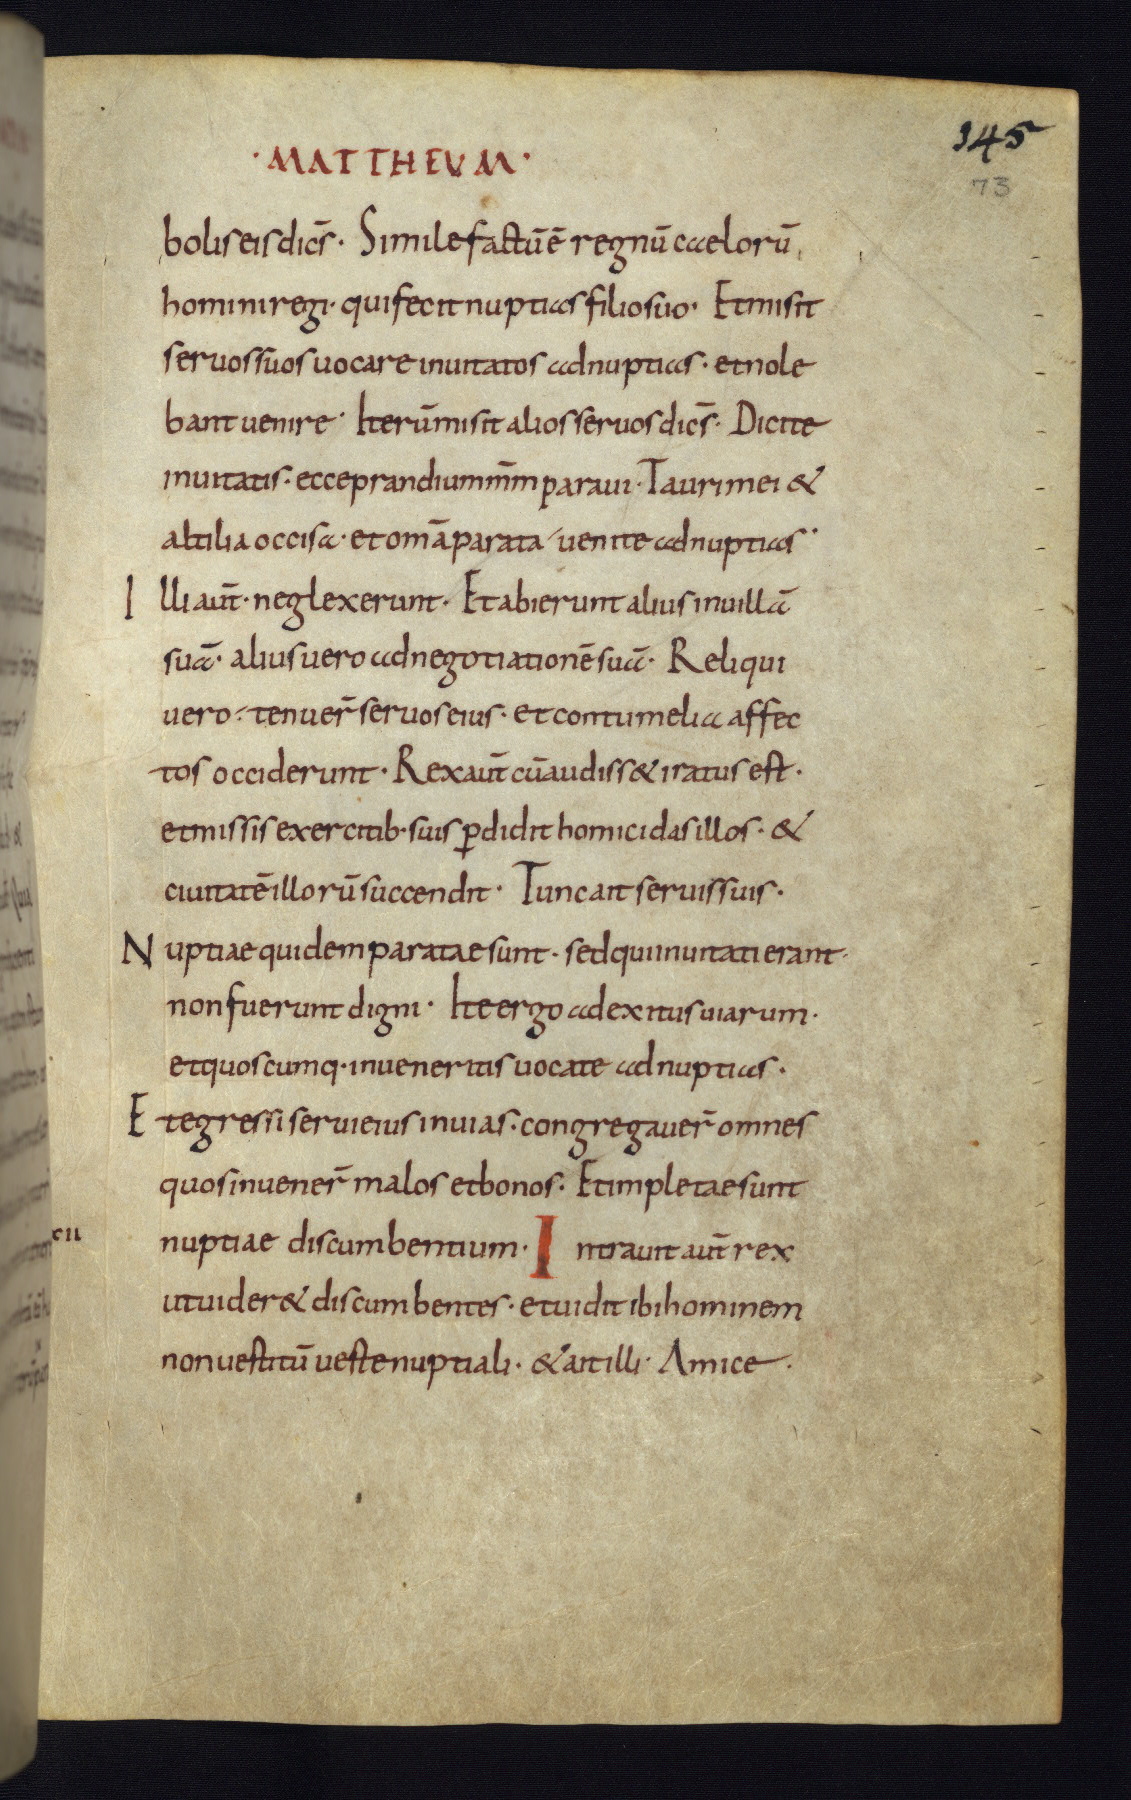 ·MATTHEUM·
145
73
bolis eis dicēs· Simile factū ē regnū caelorū
homini regi· qui fecit nuptias filio suo· Et misit
servos suos vocare invitatos ad nuptias· et nole
bant venire· Iterū misit alios servos dicēs· Dicite
invitatis· ecce prandium m̄m paravi· Tauri mei &
altilia occisa· et om̄a parata venite ad nuptias·
Illi aut̄· neglexerunt· Et abierunt alius in villā
suā· alius vero ad negotiationē suā· Reliqui
vero· tenuer̄ servos eius· et contumelia affec
tos occiderunt· Rex aut̄ cū audiss& iratus est·
et missis exercitib· suis p̱didit homicidas illos· &
civitatē illorū succendit· Tunc ait servis suis·
Nuptiae quidem paratae sunt· sed qui invitati erant·
non fuerunt digni· Ite ergo ad exitus viarum·
et quoscumq· inveneritis vocate ad nuptias·
Et egressi servi eius in vias· congregaver̄ omnes
quos invener̄ malos et bonos· Et impletae sunt
nuptiae discumbentium· Intravit aut̄ rex
ut vider& discumbentes· et vidit ibi hominem
non vestitū veste nuptiali· & ait illi· Amice·